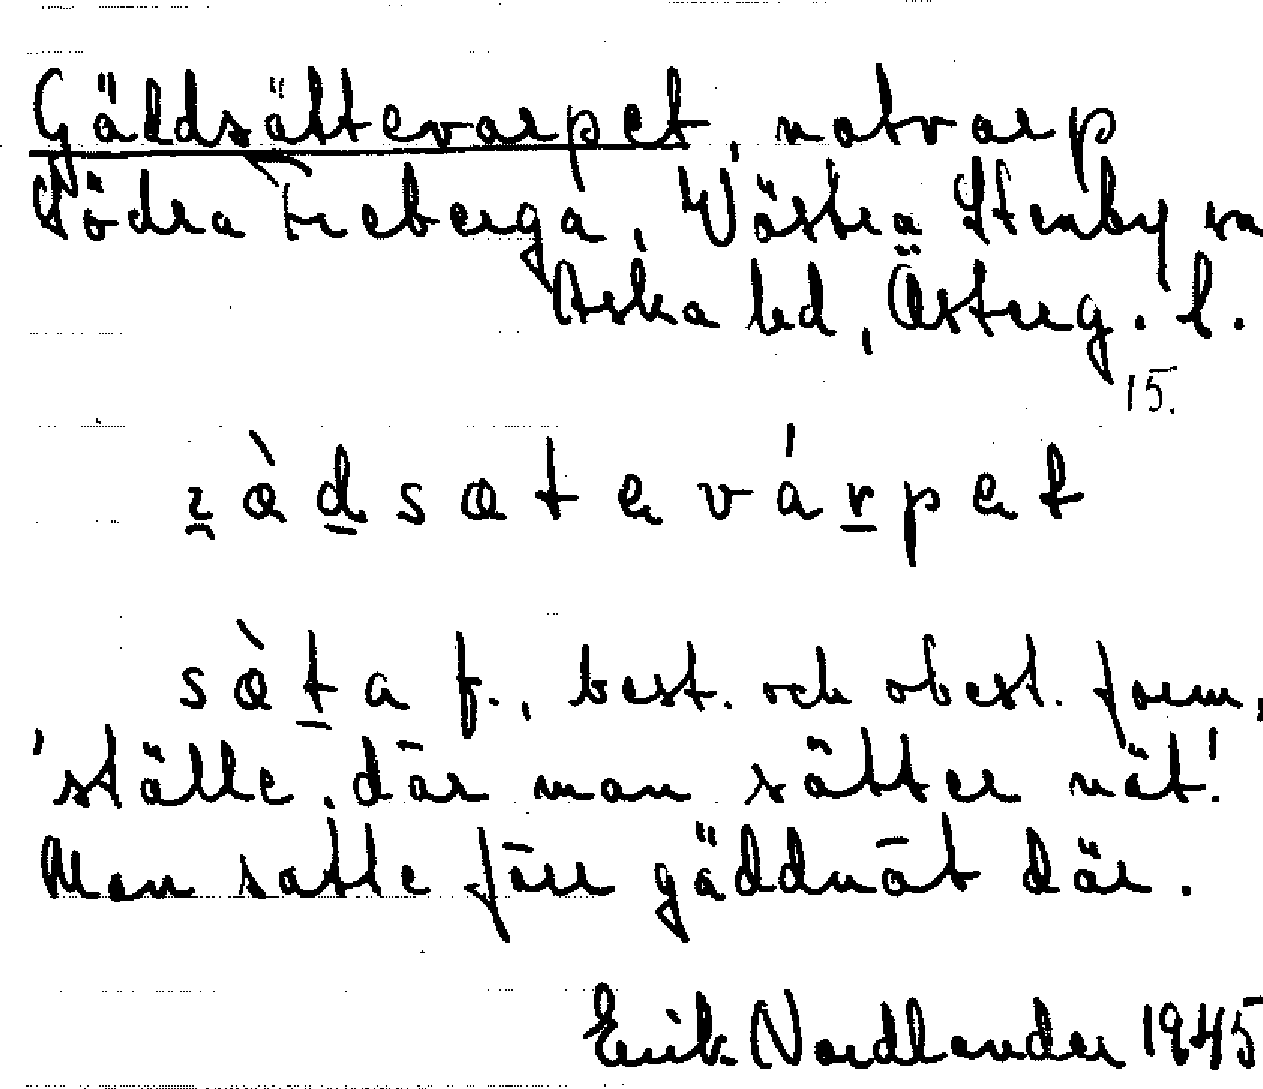 Gäddsättevarpet, notvarp
Södra Freberga, Västra Stenby sn
Aska hd, Österg. l.
15.
ꭚæ̀dsætevárpet
sæ̀ta f., best. och obest. form,
'ställe, där man sätter nät'.
Man satte förr gäddnät där.
Erik Nordlander 1945